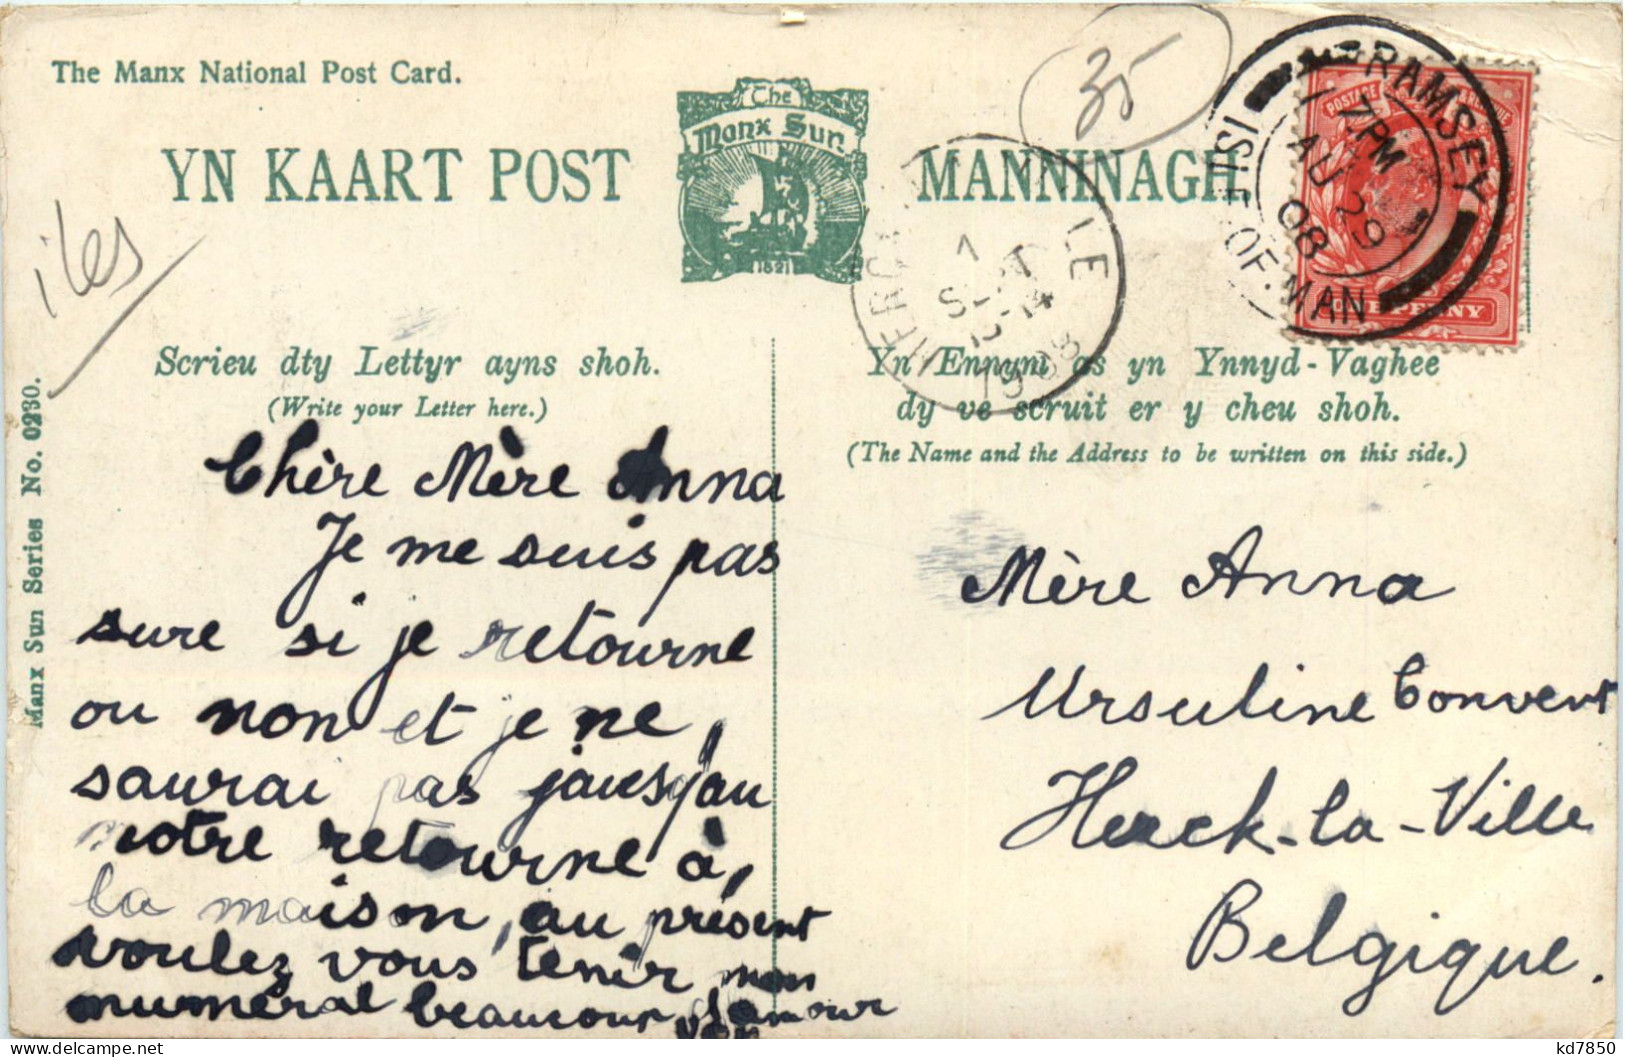 The Manx National Post Card.
YN KAART POST MANNINAGH
The
Manx Sun
1821
35
RAMSEY
ISLE OF. MAN
7 PM
AU 29
08
POSTAGE
ONE PENNY
1
SEPT
13-14
1908
LE
iles
Manx Sun Series No. 0230.
Scrieu dty Lettyr ayns shoh.
(Write your Letter here.)
Yn Ennym as yn Ynnyd-Vaghee
dy ve scruit er y cheu shoh.
(The Name and the Address to be written on this side.)
Chère Mère Anna
Je me suis pas
sure si je retourne
ou non et je ne
saurai pas jausqu'au
notre retourne à,
la maison, au présent
voulez vous tenir mon
numéral beaucoup d'amour
Mère Anna
Ursuline Convent
Herck-la-Ville
Belgique.
kd7850